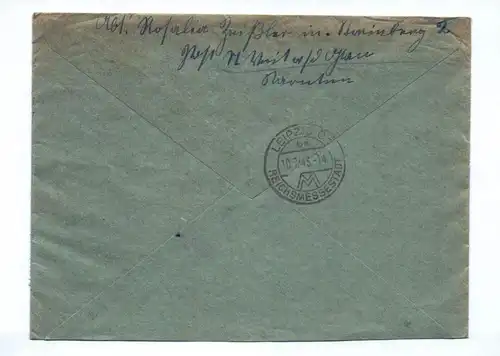 Abs. Rosalia in Steinberg 2
Post St Veit a/d Glan
Kärnten
LEIPZIG C 2
10.2.45-14
REICHSMESSESTADT